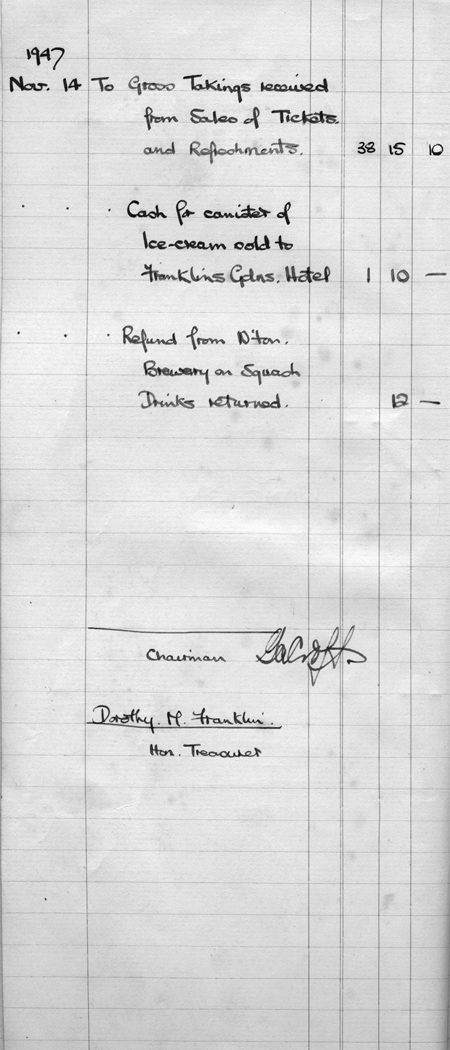 1947
Nov. 14 To Gross Takings received
from Sales of Tickets
and Refreshments. 38 15 10
" " " Cash for canister of
Ice-cream sold to
Franklins Gdns. Hotel 1 10 —
" " " Refund from N'ton.
Brewery on Squash
Drinks returned. 12 —
Chairman
Dorothy. M. Franklin.
Hon. Treasurer